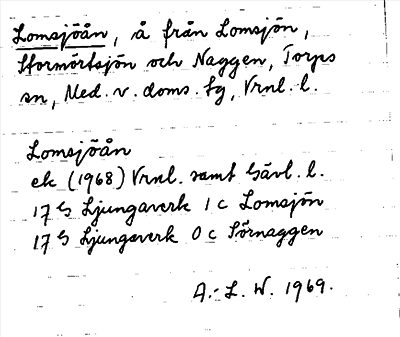 Lomsjöån, å från Lomsjön,
Stormörtsjön och Naggen, Torps
sn, Med. v. doms. tg, Vrnl. l.
Lomsjöån
ek (1968) Vrnl. samt Gävl. l.
17 G Ljungaverk 1 c Lomsjön
17 G Ljungaverk 0 c Sörnaggen
A.-L. W. 1969.